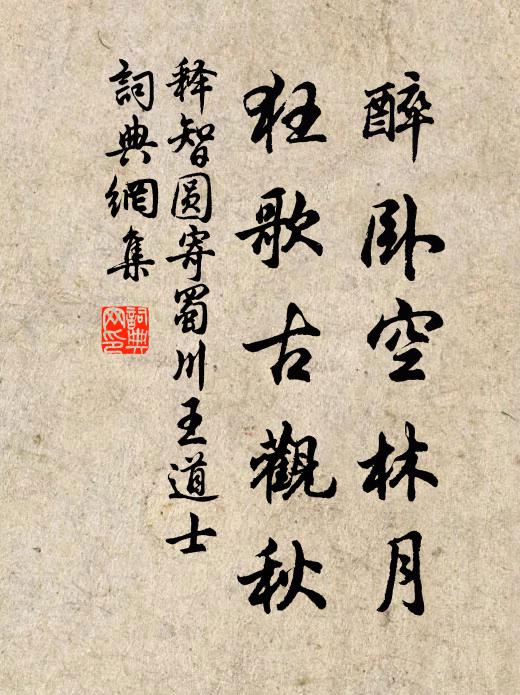 醉卧空林月
狂歌古觀秋
释智圆寄蜀川王道士
詞典網集
詞典网印